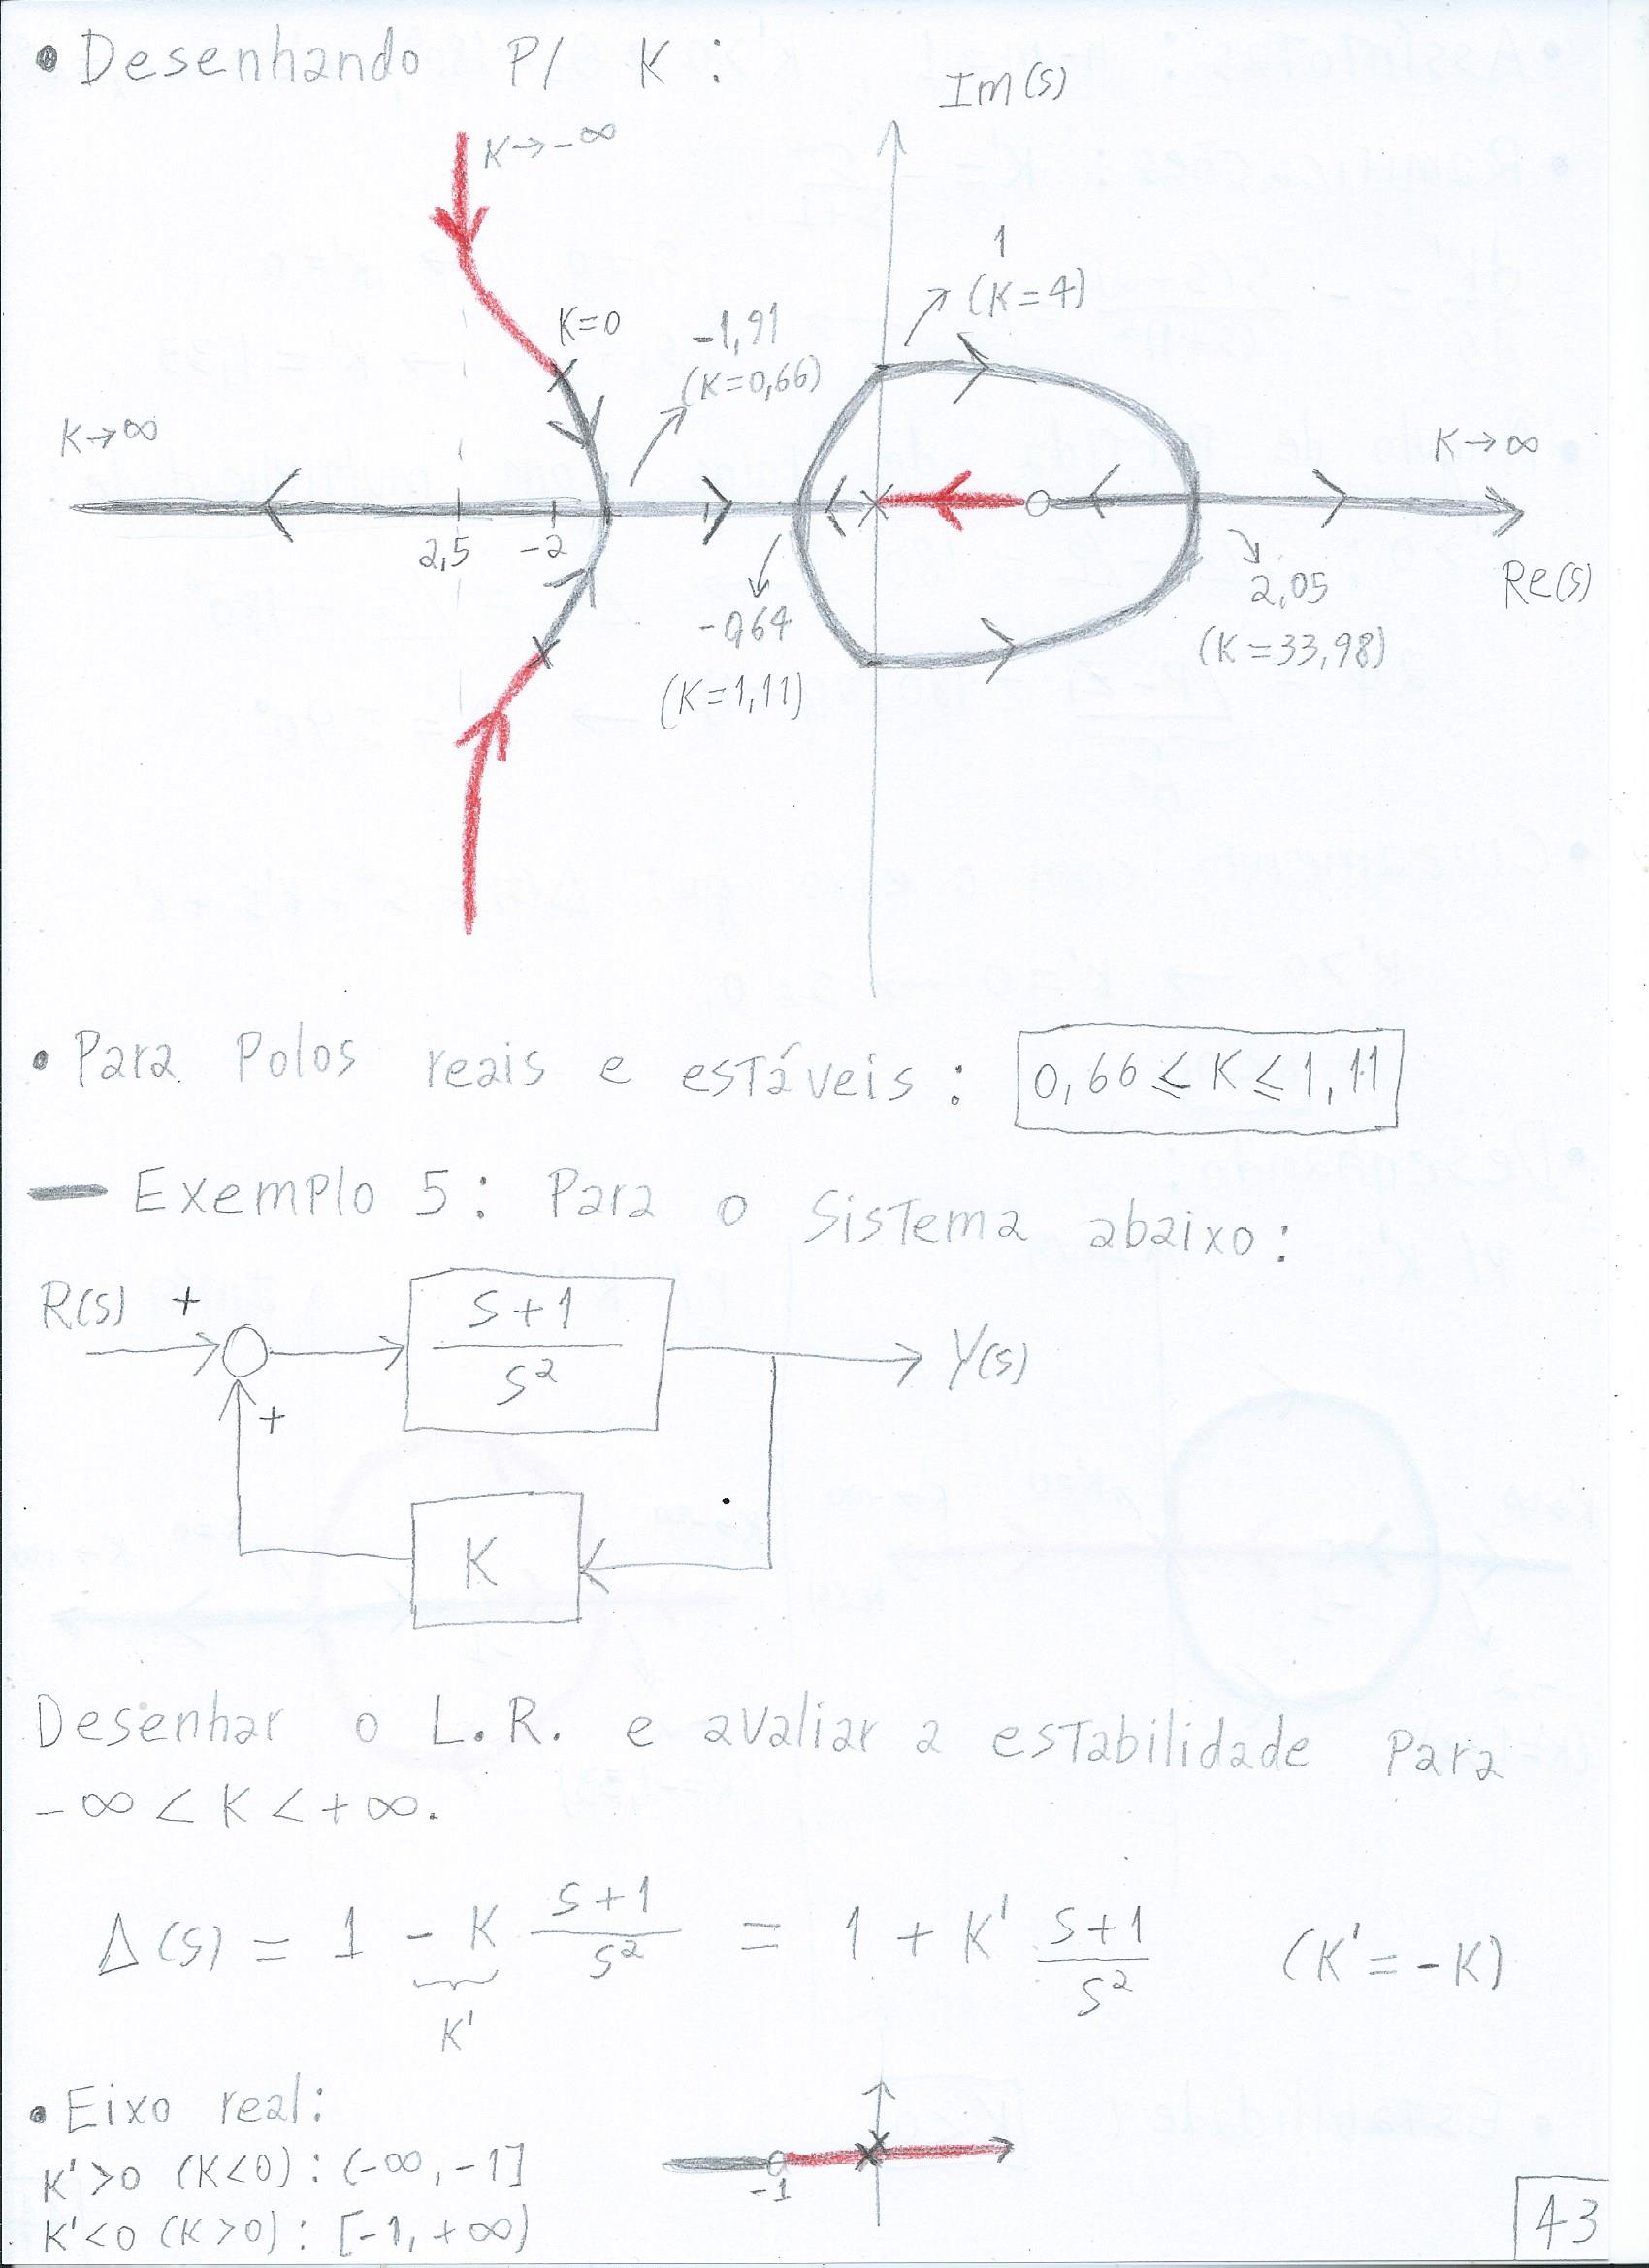 • Desenhando P/ K:
Im(s)
K→-∞
1
(K=4)
K=0
-1,91
(K=0,66)
K→∞
K→∞
2,5
-2
2,05
Re(s)
-0,64
(K=33,98)
(K=1,11)
• Para Polos reais e estáveis: 0,66 ≤ K ≤ 1,11
— Exemplo 5: Para o Sistema abaixo:
R(s) +
s+1
s²
Y(s)
+
K
Desenhar o L.R. e avaliar a estabilidade Para
-∞ < K < +∞.
Δ(s) = 1 - K (s+1)/s² = 1 + K' (s+1)/s² (K' = -K)
K'
• Eixo real:
K'>0 (K<0): (-∞, -1]
-1
K'<0 (K>0): [-1, +∞)
43